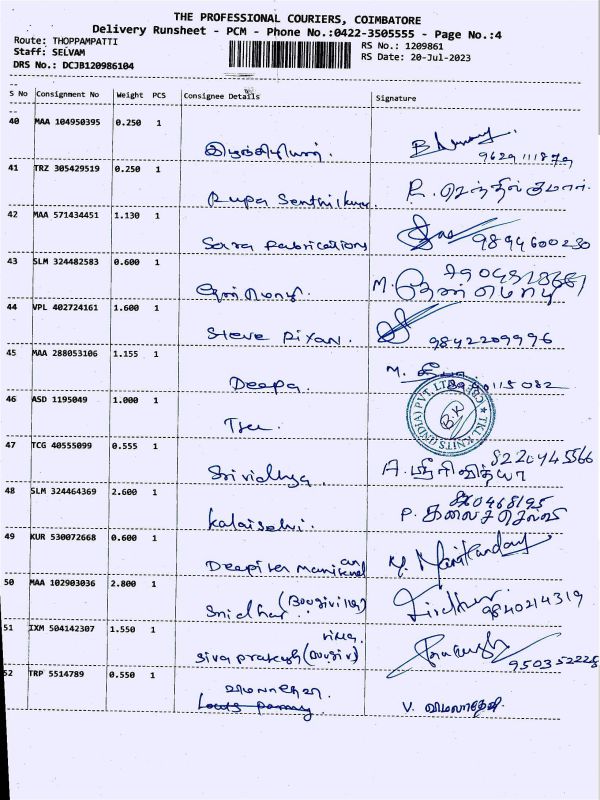 THE PROFESSIONAL COURIERS, COIMBATORE
Delivery Runsheet - PCM - Phone No.:0422-3505555 - Page No.:4
Route: THOPPAMPATTI
Staff: SELVAM
DRS No.: DCJB120986104
RS No.: 1209861
RS Date: 20-Jul-2023
S No Consignment No Weight PCS Consignee Details Signature
40 MAA 104950395 0.250 1
9629111879
41 TRZ 305429519 0.250 1
Rupa Senthilkumar R. செந்தில்குமார்
42 MAA 571434451 1.130 1
Sara Fabrications 9894600230
43 SLM 324482583 0.600 1
தேன்மொழி. M. தேன்மொழி
44 VPL 402724161 1.600 1
Steve Dixan. 9842209996
45 MAA 288053106 1.155 1
Deepa. M. தீபா
46 ASD 1195049 1.000 1
TKL KNITS (INDIA) PVT. LTD.
B.K
47 TCG 40555099 0.555 1
Srividhya. A. ஸ்ரீவித்யா
48 SLM 324464369 2.600 1
Kalaiselvi. P. கலைச்செல்வி
49 KUR 530072668 0.600 1
Manikandan
50 MAA 102903036 2.800 1
Sridhar 9840214319
51 IXM 504142307 1.550 1
Siva prakash
52 TRP 5514789 0.550 1
V.